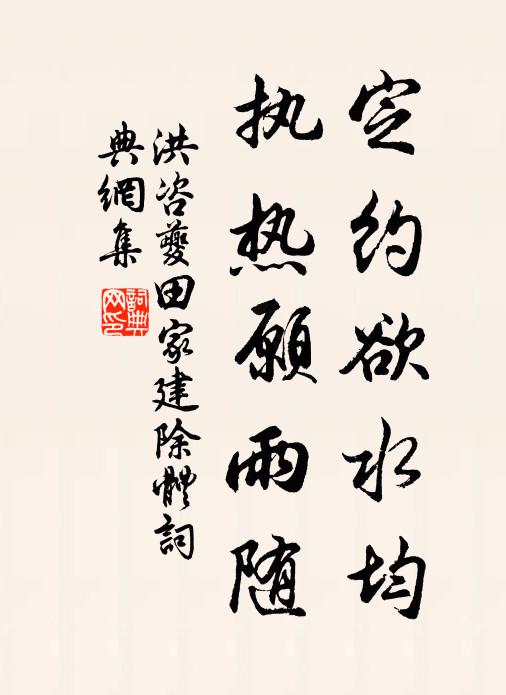 定约欲水均
执热愿雨随
洪咨夔田家建除體詞
典網集
詞典
网印